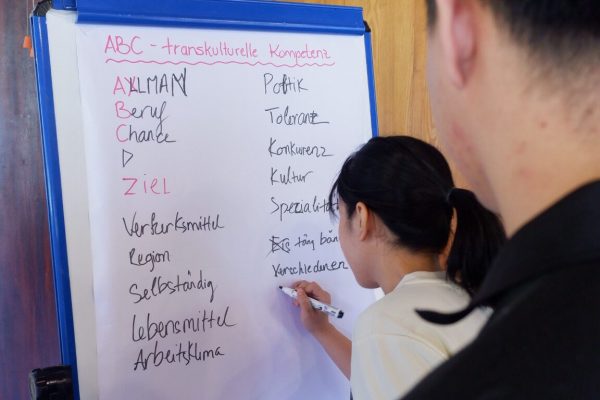 ABC - transkulturelle Kompetenz
AXLMAN
Beruf
Chance
D
ZIEL
Verkurksmittel
Region
Selbständig
Lebensmittel
Arbeitsklima
Politik
Toleranz
Konkurenz
Kultur
Spezialität
tăng bản
Verschiedenen